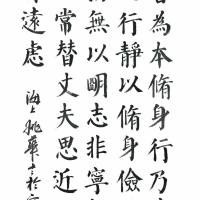 為本脩身行乃
行靜以脩身儉
無以明志非寧
常替丈夫思近
遠慮
海上